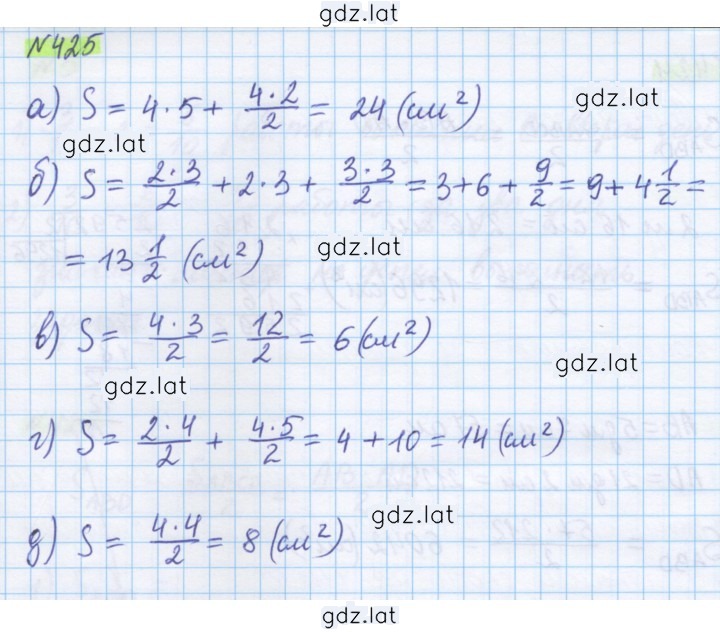 gdz.lat
№425
а) S = 4·5 + 4·2/2 = 24 (см²)
gdz.lat
gdz.lat
б) S = 2·3/2 + 2·3 + 3·3/2 = 3+6+ 9/2 = 9+4 1/2 =
= 13 1/2 (см²)
gdz.lat
в) S = 4·3/2 = 12/2 = 6 (см²)
gdz.lat
gdz.lat
г) S = 2·4/2 + 4·5/2 = 4 + 10 = 14 (см²)
gdz.lat
д) S = 4·4/2 = 8 (см²)
gdz.lat